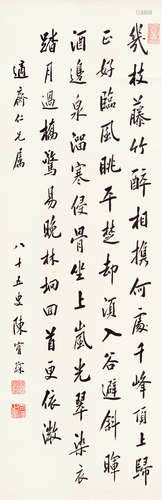 幾枝藤竹醉相携何處千峰頂上歸
正好臨風眺平楚却須入谷避斜暉
酒邊泉溜寒侵骨坐上嵐光翠染衣
踏月過橋驚易晚林坰回首更依微
適齋仁兄屬
八十五叟陳寶琛